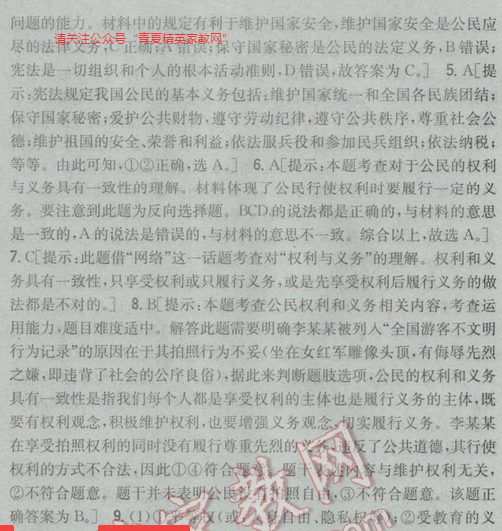 问题的能力。材料中的规定有利于维护国家安全,维护国家安全是公民应
请关注公众号“青夏精英家教网”
尽的法律义务,C正确,A错误;保守国家秘密是公民的法定义务,B错误;
宪法是一切组织和个人的根本活动准则,D错误,故答案为C。] 5. A[提
示:宪法规定我国公民的基本义务包括:维护国家统一和全国各民族团结;
保守国家秘密;爱护公共财物,遵守劳动纪律,遵守公共秩序,尊重社会公
德;维护祖国的安全、荣誉和利益;依法服兵役和参加民兵组织;依法纳税;
等等。由此可知,①②正确,选A。] 6. A[提示:本题考查对于公民的权利
与义务具有一致性的理解。材料体现了公民行使权利时要履行一定的义
务。要注意到此题为反向选择题。BCD的说法都是正确的,与材料的意思
是一致的,A的说法是错误的,与材料的意思不一致。综合以上,故选A。]
7. C[提示:此题借“网络”这一话题考查对“权利与义务”的理解。权利和义
务具有一致性,只享受权利或只履行义务,或是先享受权利后履行义务的做
法都是不对的。] 8. B[提示:本题考查公民权利和义务相关内容,考查运
用能力,题目难度适中。解答此题需要明确李某某被列入“全国游客不文明
行为记录”的原因在于其拍照行为不妥(坐在女红军雕像头顶,有侮辱先烈
之嫌,即违背了社会的公序良俗),据此来判断题肢选项,公民的权利和义务
具有一致性是指我们每个人都是享受权利的主体也是履行义务的主体,既
要有权利观念,积极维护权利,也要增强义务观念,切实履行义务。李某某
在享受拍照权利的同时没有履行尊重先烈的 违反了公共道德,其行使
权利的方式不合法,因此①④符合题意。题干表述内容与维护权利无关,
②不符合题意。题干并未表明公民没有拍照自由,③不符合题意。该题正
确答案为B。] 9. (1)①平等权(或 身自由、隐私权等);②受教育的义